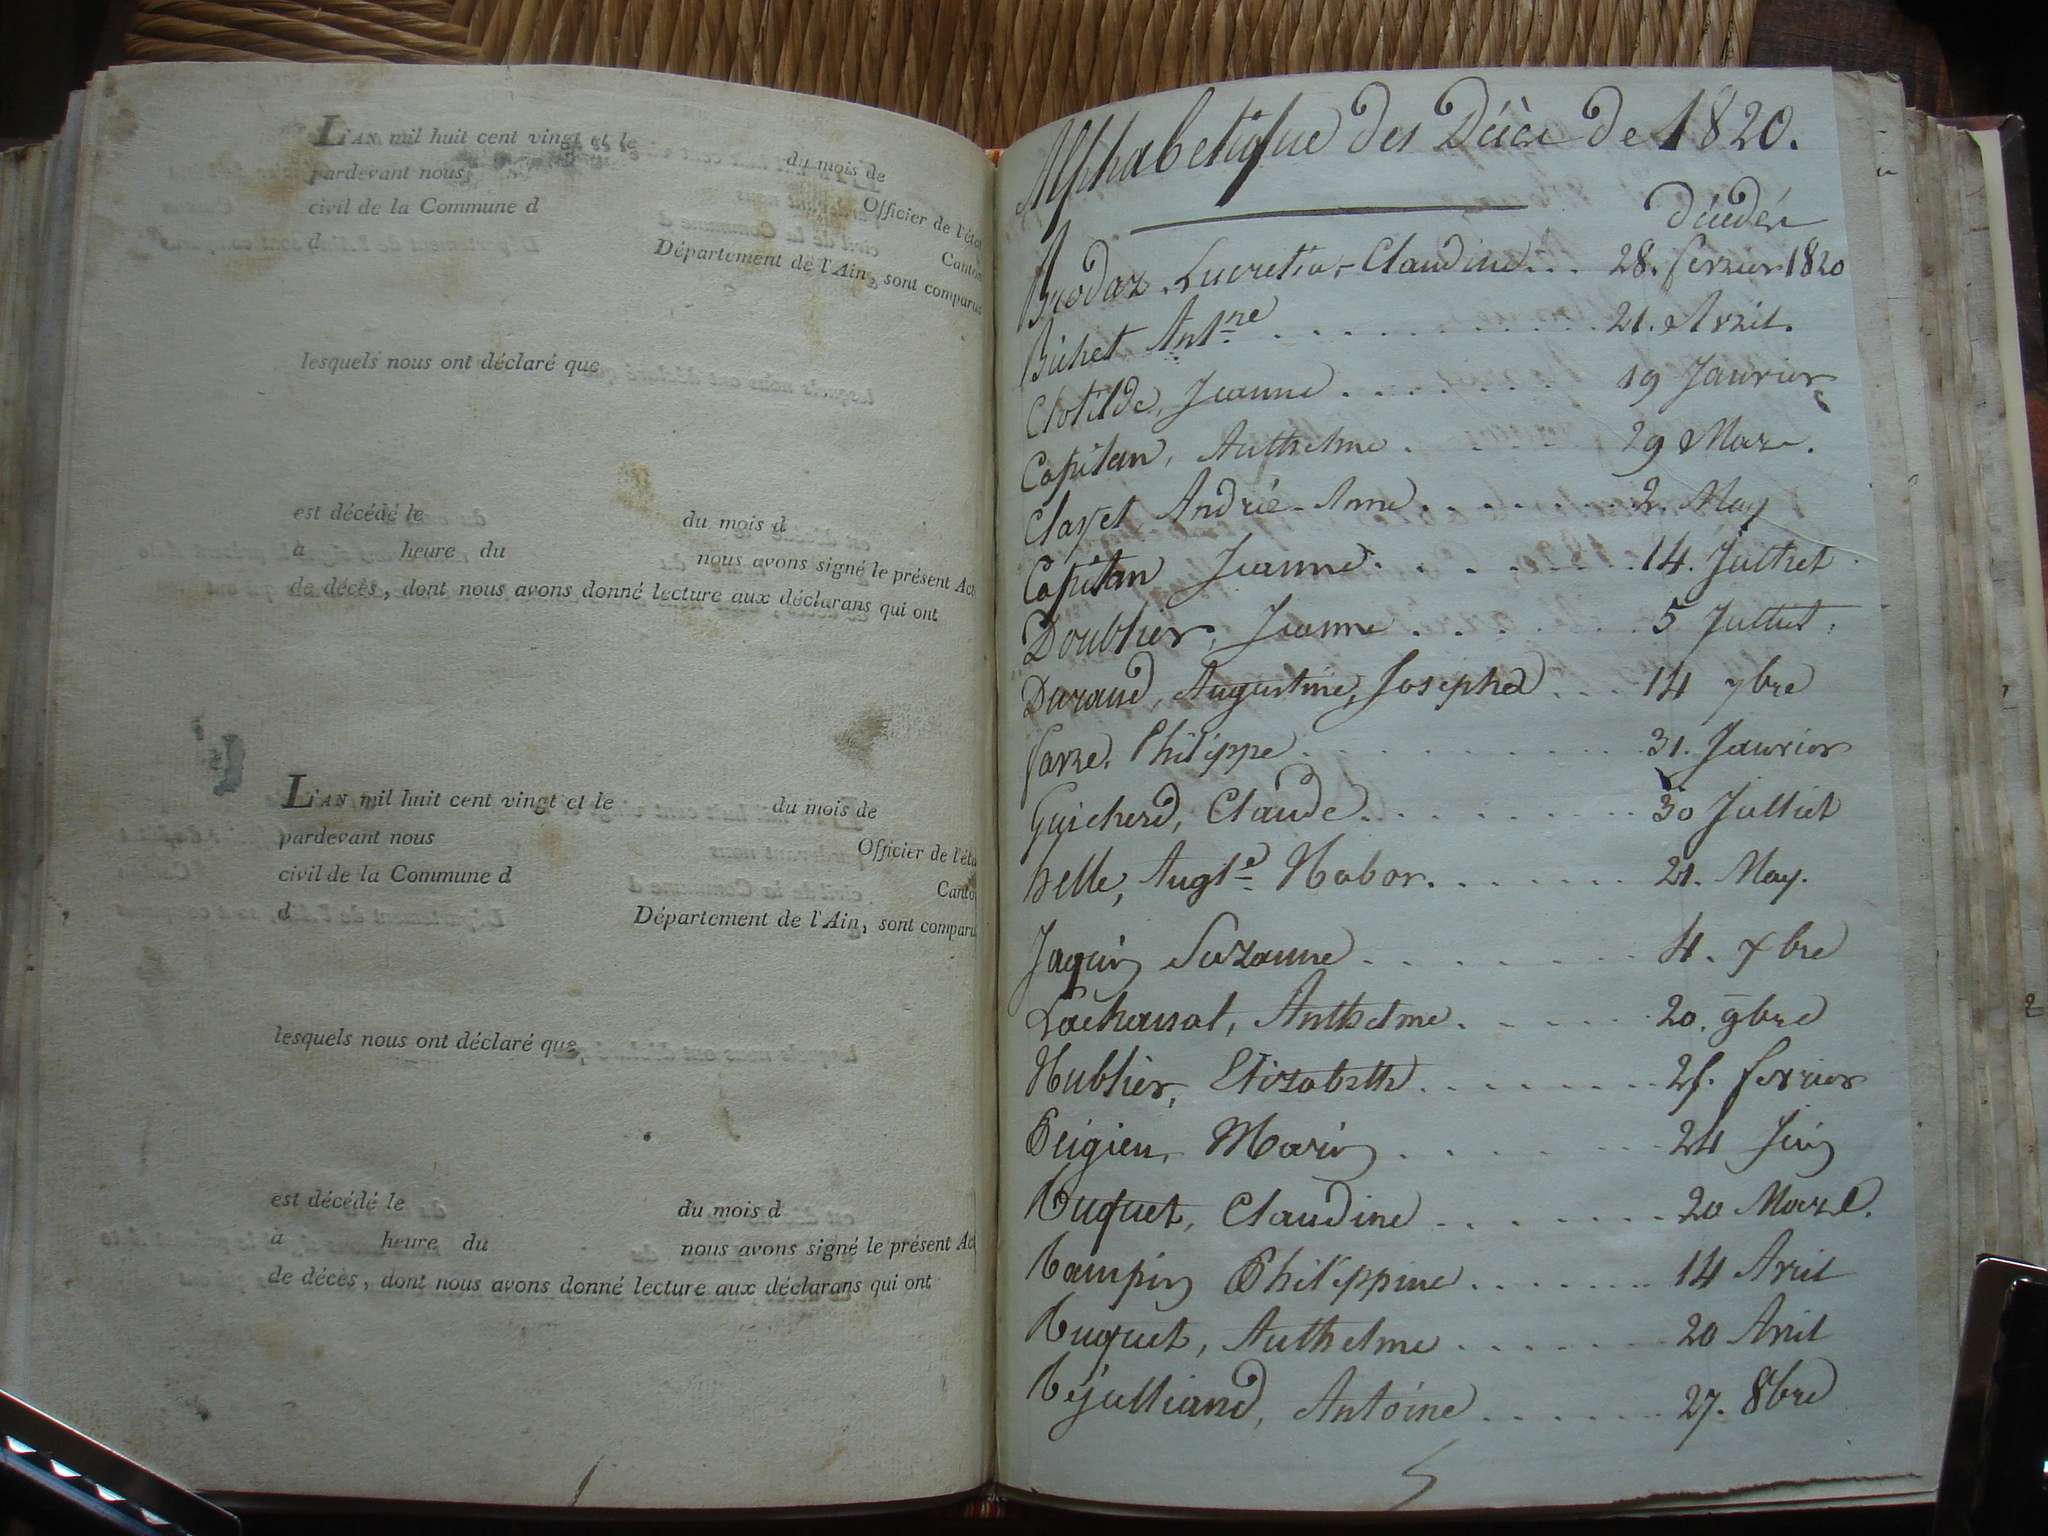 L'AN mil huit cent vingt et le du mois de
pardevant nous Officier de l'éta
civil de la Commune d Canton
d Département de l'Ain, sont comparus
lesquels nous ont déclaré que
est décédé le du mois d
à heure du nous avons signé le présent Act
de décès, dont nous avons donné lecture aux déclarans qui ont
L'AN mil huit cent vingt et le du mois de
pardevant nous Officier de l'éta
civil de la Commune d Canto
d Département de l'Ain, sont comparu
lesquels nous ont déclaré que
est décédé le du mois d
à heure du nous avons signé le présent Act
de décès, dont nous avons donné lecture aux déclarans qui ont
Alphabetique des Décès de 1820.
décédés
Brodaz, Lucretia-Claudine... 28. fevrier 1820
Bichet Antne 21. Avril.
Clotilde, Jeanne 19 Janvier
Capitan, Anthelme 29 Mars.
Clayet Andrée-Anne 2. May
Capitan Jeanne 14. Julliet
Doublier, Jeanne 5 Julliet
Durand, Augustine, Josephe 14 7bre
Philippe 31. Janvier
Guicherd, Claude 30 Julliet
Augte Nabor. 21. May.
Jaquin Suzanne 4. Xbre
Anthelme 20. 9bre
Nublier, Elizabeth fevrier
Peigieu, Marin 24 Juin
Ruquet, Claudine 20 Mars.
Rampin Philippine 14 Avril
Ruquet, Anthelme 20 Avril
Réjulliand, Antoine 27. 8bre